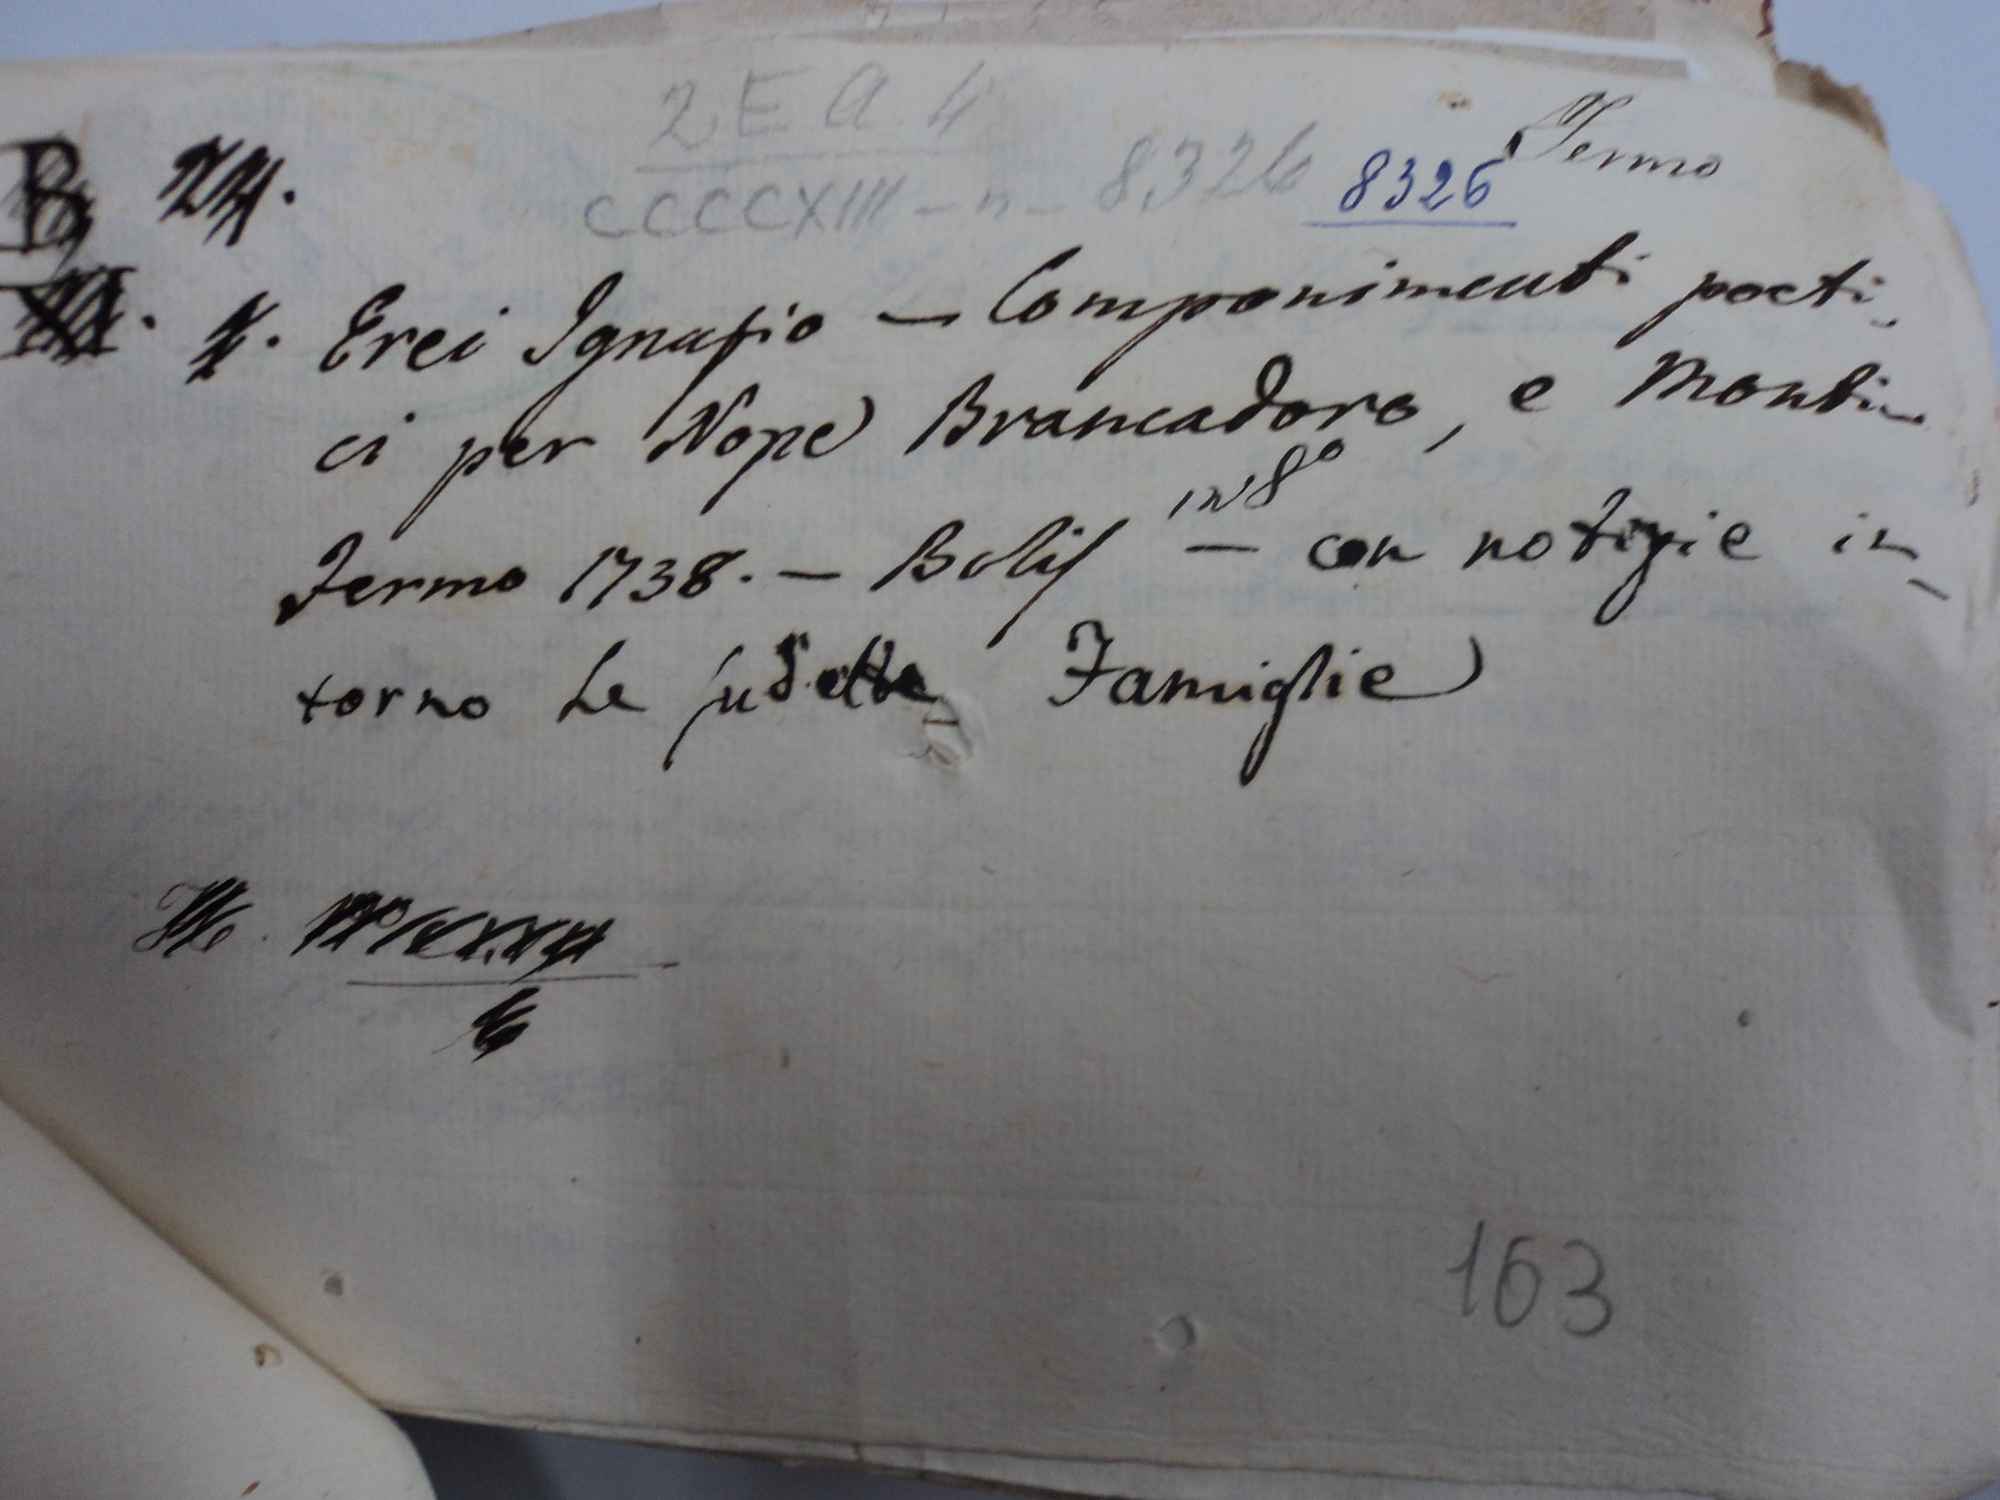 2 E A 4
Fermo
CCCCXIII - n - 8326 8326
B 24.
Erei Ignazio - Componimenti poeti-
ci per Nope Brancadoro, e Monti
in 8º
Fermo 1738. - Bolis - con notizie in-
torno le sudette Famiglie
163